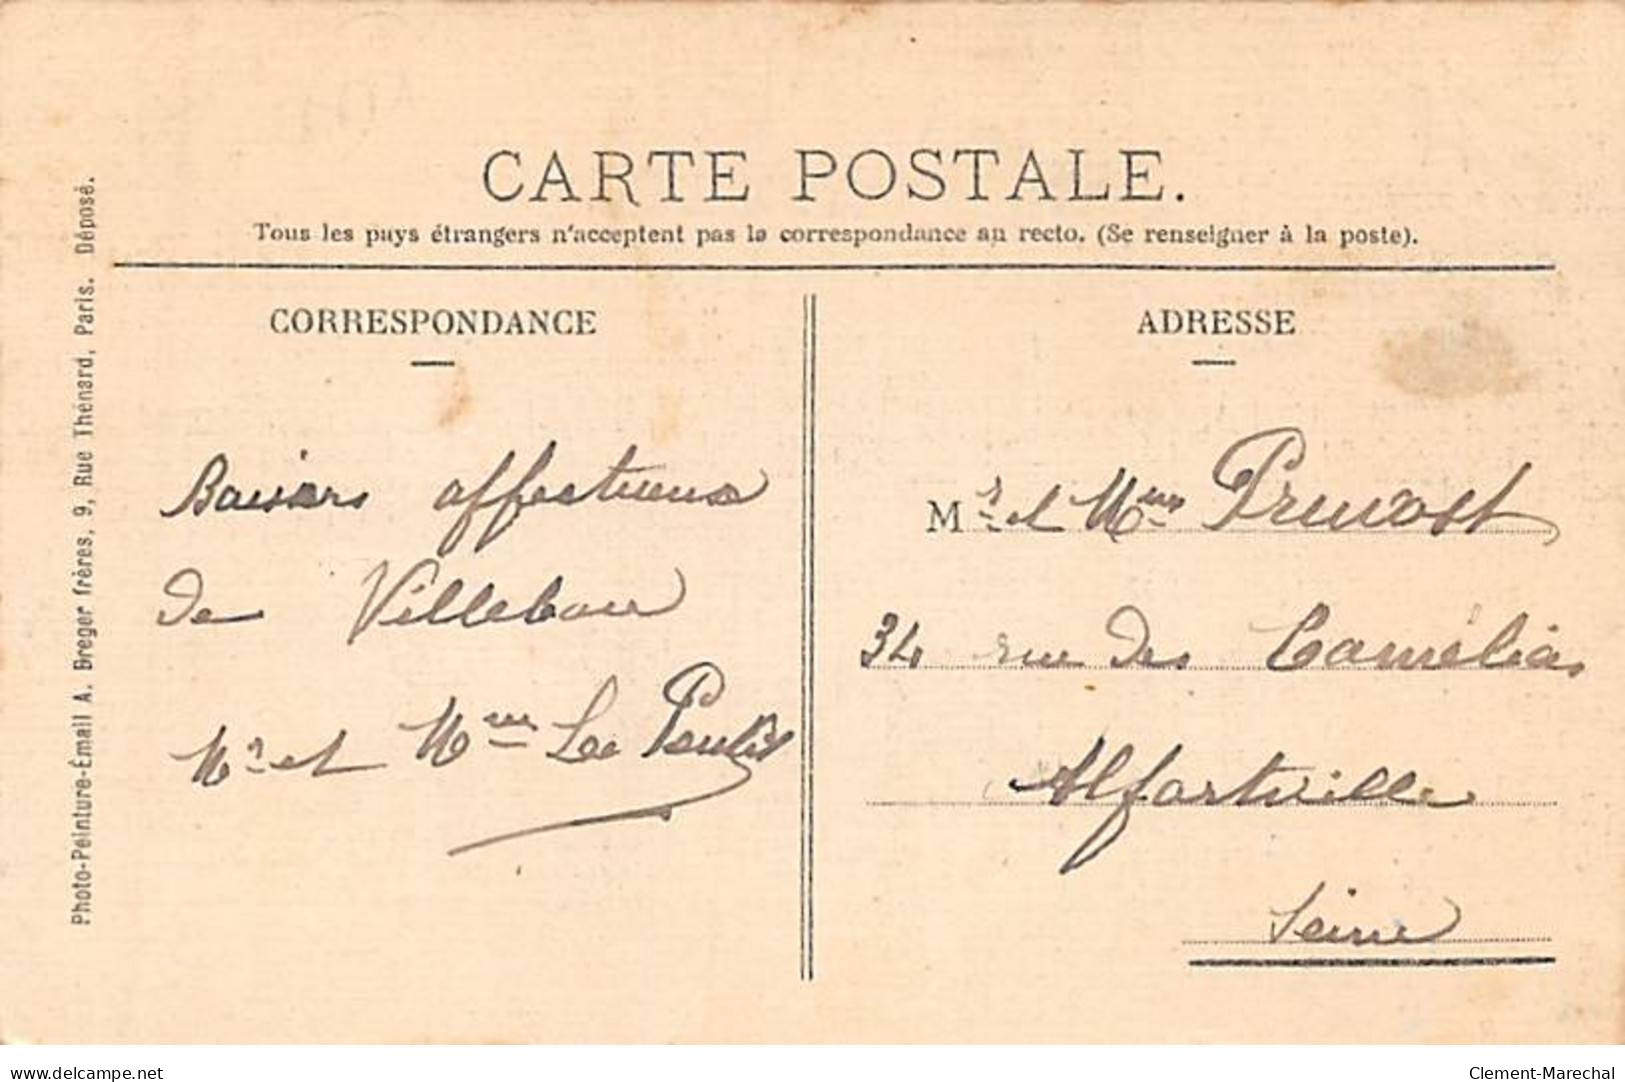 CARTE POSTALE.
Tous les pays étrangers n'acceptent pas la correspondance au recto. (Se renseigner à la poste).
CORRESPONDANCE
Baisers affectueux
de Villebon
Mr et Mme Le
ADRESSE
Mr et Mme Pruvost
34 rue des Camélias
Alfortville
Seine
Photo-Peinture-Émail A. Breger frères, 9, Rue Thénard, Paris. Déposé.
delcampe.net
Clement-Marechal